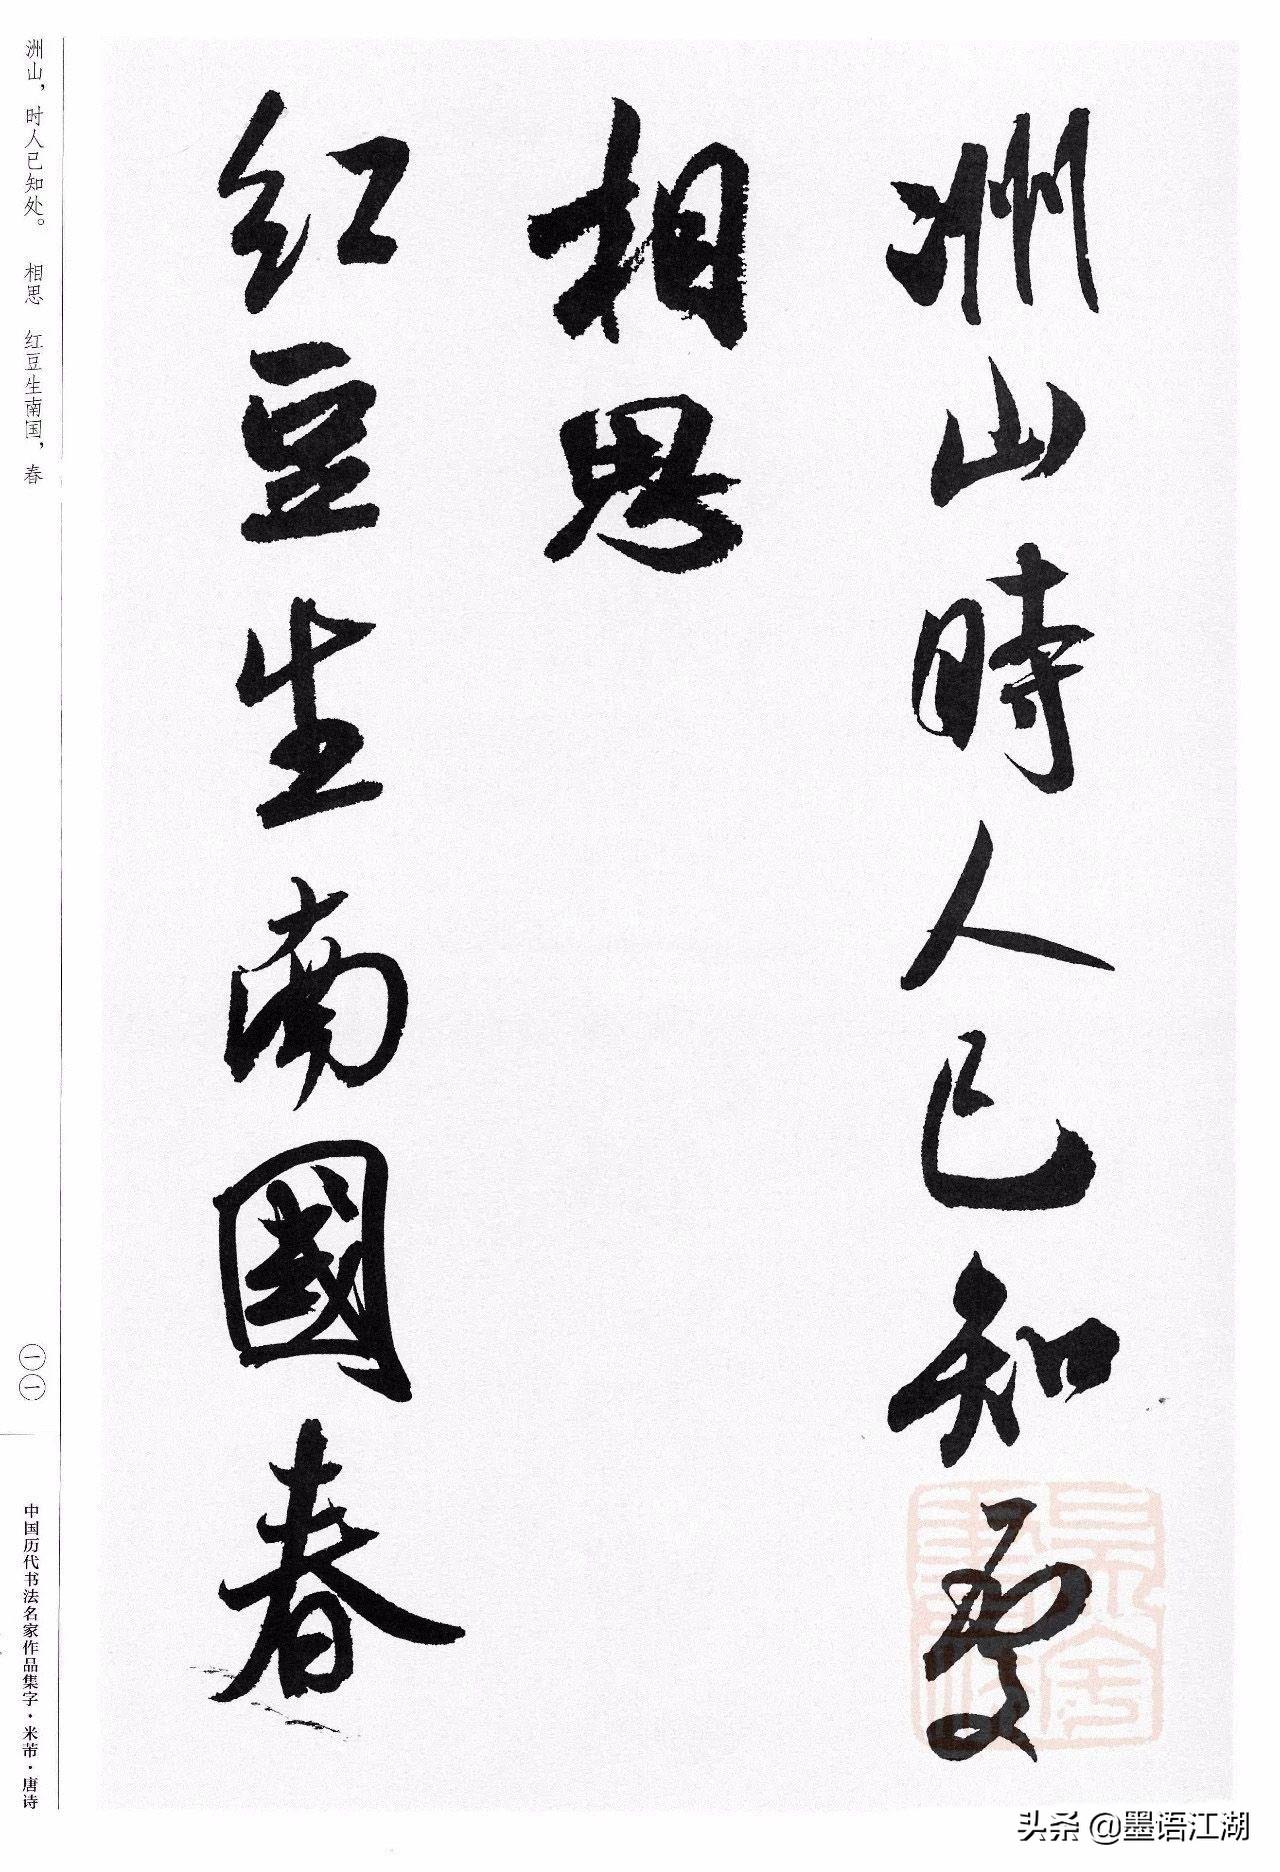 洲山時人已知處
相思
红豆生南國春
洲山，时人已知处。 相思 红豆生南国，春
一一
中国历代书法名家作品集字·米芾·唐诗
头条 @墨语江湖